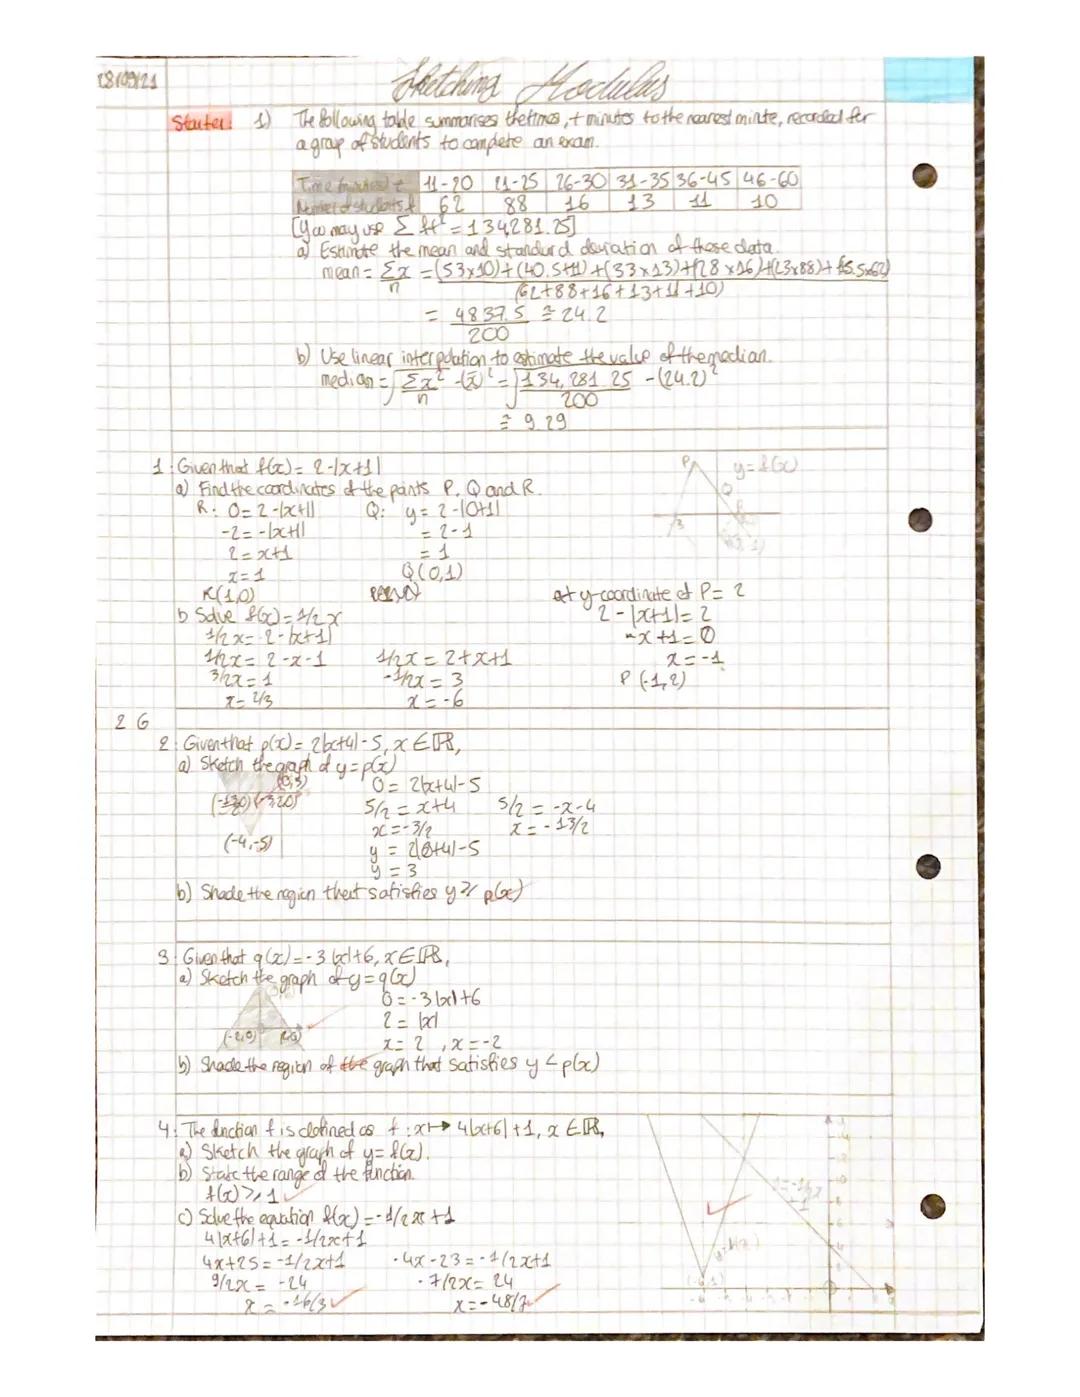 28/09/21
Sketching Modulus
Starter: 1) The following table summarises the times, t minutes to the nearest minute, recorded for
a group of students to complete an exam.
Time (minutes) t 11-20 21-25 26-30 31-35 36-45 46-60
Number of students f 62 88 16 13 11 10
[You may use Σ ft² = 134281.25]
a) Estimate the mean and standard deviation of these data.
mean = Σx/n = (53×10)+(40.5×11)+(33×13)+(28×16)+(23×88)+(15.5×62)
(62+88+16+13+11+10)
= 4837.5/200 ≅ 24.2
b) Use linear interpolation to estimate the value of the median.
median = √Σx²/n -(x̄)² = √134,281.25/200 -(24.2)²
≅ 9.29
1. Given that f(x) = 2-|x+1|
a) Find the coordinates of the points P, Q and R.
R: 0 = 2-|x+1| Q: y = 2-|0+1|
-2 = -|x+1| = 2-1
2 = x+1 = 1
x = 1 Q(0,1)
R(1,0)
y=f(x)
P
Q
at y-coordinate of P = 2
2-|x+1| = 2
-x+1 = 0
x = -1
P(-1,2)
b Solve f(x) = 1/2 x
1/2x = 2-|x+1|
1/2x = 2-x-1 1/2x = 2+x+1
3/2x = 1 -1/2x = 3
x = 2/3 x = -6
2 G
2. Given that p(x) = 2|x+4|-5, x ∈ ℝ,
a) Sketch the graph of y = p(x)
(0,3) 0 = 2|x+4|-5
5/2 = x+4 5/2 = -x-4
x = -3/2 x = -13/2
(-4,-5) y = 2|0+4|-5
y = 3
b) Shade the region that satisfies y ≥ p(x)
3. Given that q(x) = -3|x|+6, x ∈ ℝ,
a) Sketch the graph of y = q(x)
0 = -3|x|+6
2 = |x|
(-2,0) x = 2 , x = -2
b) Shade the region of the graph that satisfies y < p(x)
4. The function f is defined as f: x ↦ 4|x+6|+1, x ∈ ℝ,
a) Sketch the graph of y = f(x).
b) State the range of the function.
f(x) ≥ 1
c) Solve the equation f(x) = -1/2x+1
4|x+6|+1 = -1/2x+1
4x+25 = -1/2x+1 -4x-23 = -1/2x+1
9/2x = -24 -7/2x = 24
x = -16/3 x = -48/7
(-6,1)